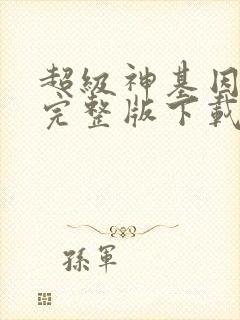 超級神基因
完整版下載
孫軍